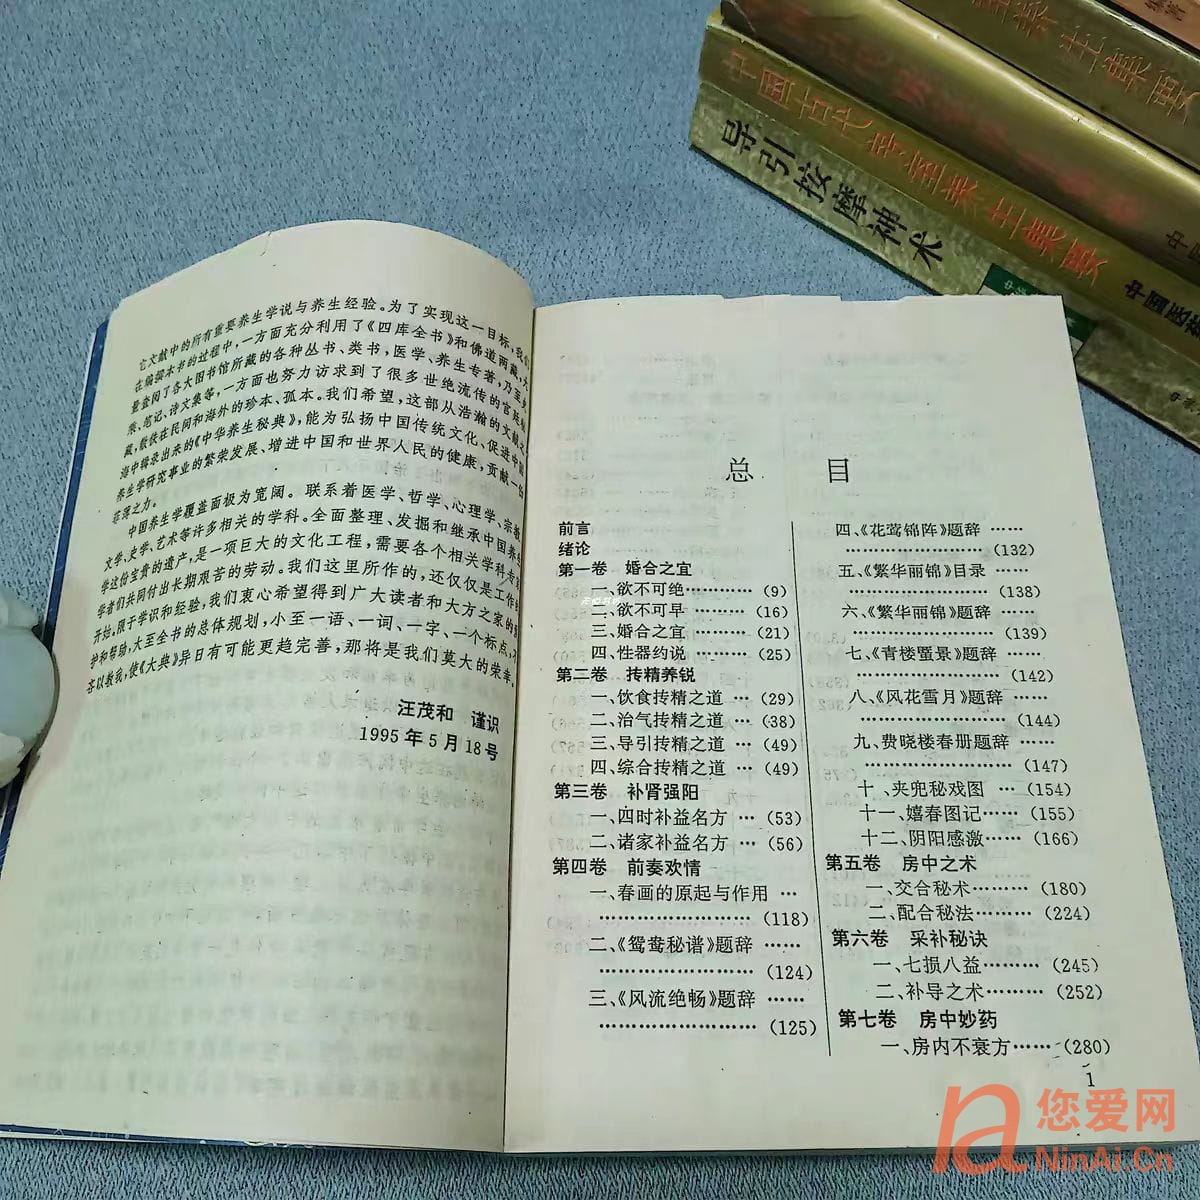 它文献中的所有重要养生学说与养生经验。为了实现这一目标,我们
在编撰本书的过程中,一方面充分利用了《四库全书》和佛道两藏,大
量查阅了各大图书馆所藏的各种丛书、类书,医学、养生专著,乃至史
乘、笔记、诗文集等,一方面也努力访求到了很多世绝流传的宫廷秘
藏,散佚在民间和海外的珍本、孤本。我们希望,这部从浩瀚的文献之
海中辑录出来的《中华养生秘典》,能为弘扬中国传统文化、促进中国
养生学研究事业的繁荣发展、增进中国和世界人民的健康,贡献一份
菲薄之力。
中国养生学覆盖面极为宽阔。联系着医学、哲学、心理学、宗教
文学、史学、艺术等许多相关的学科。全面整理、发掘和继承中国养生
学这份宝贵的遗产,是一项巨大的文化工程,需要各个相关学科专家
学者们共同付出长期艰苦的劳动。我们这里所作的,还仅仅是工作的
开始。限于学识和经验,我们衷心希望得到广大读者和大方之家的
护和帮助,大至全书的总体规划,小至一语、一词、一字、一个标点,不
吝以教我,使《大典》异日有可能更趋完善,那将是我们莫大的荣幸。
汪茂和 谨识
1995年5月18号
总 目
前言
绪论
第一卷 婚合之宜
一、欲不可绝…………(9)
二、欲不可早…………(16)
三、婚合之宜…………(21)
四、性器约说…………(25)
第二卷 抟精养锐
一、饮食抟精之道 …(29)
二、治气抟精之道 …(38)
三、导引抟精之道 …(49)
四、综合抟精之道 …(49)
第三卷 补肾强阳
一、四时补益名方 …(53)
二、诸家补益名方 …(56)
第四卷 前奏欢情
一、春画的原起与作用 …
……………………(118)
二、《鸳鸯秘谱》题辞 ……
……………………(124)
三、《风流绝畅》题辞 ……
……………………(125)
四、《花营锦阵》题辞 ……
……………………(132)
五、《繁华丽锦》目录 ……
……………………(138)
六、《繁华丽锦》题辞 ……
……………………(139)
七、《青楼蜃景》题辞 ……
……………………(142)
八、《风花雪月》题辞 ……
……………………(144)
九、费晓楼春册题辞 ……
……………………(147)
十、夹兜秘戏图 …(154)
十一、嬉春图记……(155)
十二、阴阳感激……(166)
第五卷 房中之术
一、交合秘术………(180)
二、配合秘法………(224)
第六卷 采补秘诀
一、七损八益………(245)
二、补导之术………(252)
第七卷 房中妙药
一、房内不衰方……(280)
1
导引按摩神术
中国古代房室养生集要
中国医药
养生集要
您爱网
NinAi.Cn